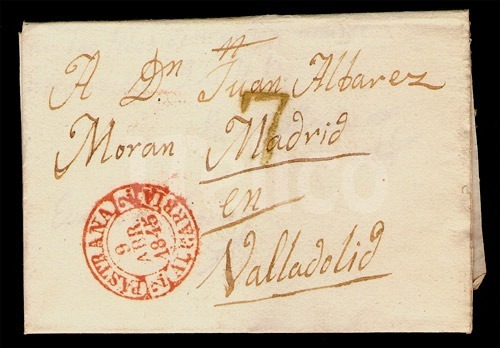 A Dn Juan Albarez
7
Moran Madrid
en
Valladolid
PASTRANA
9
ABR.
1845